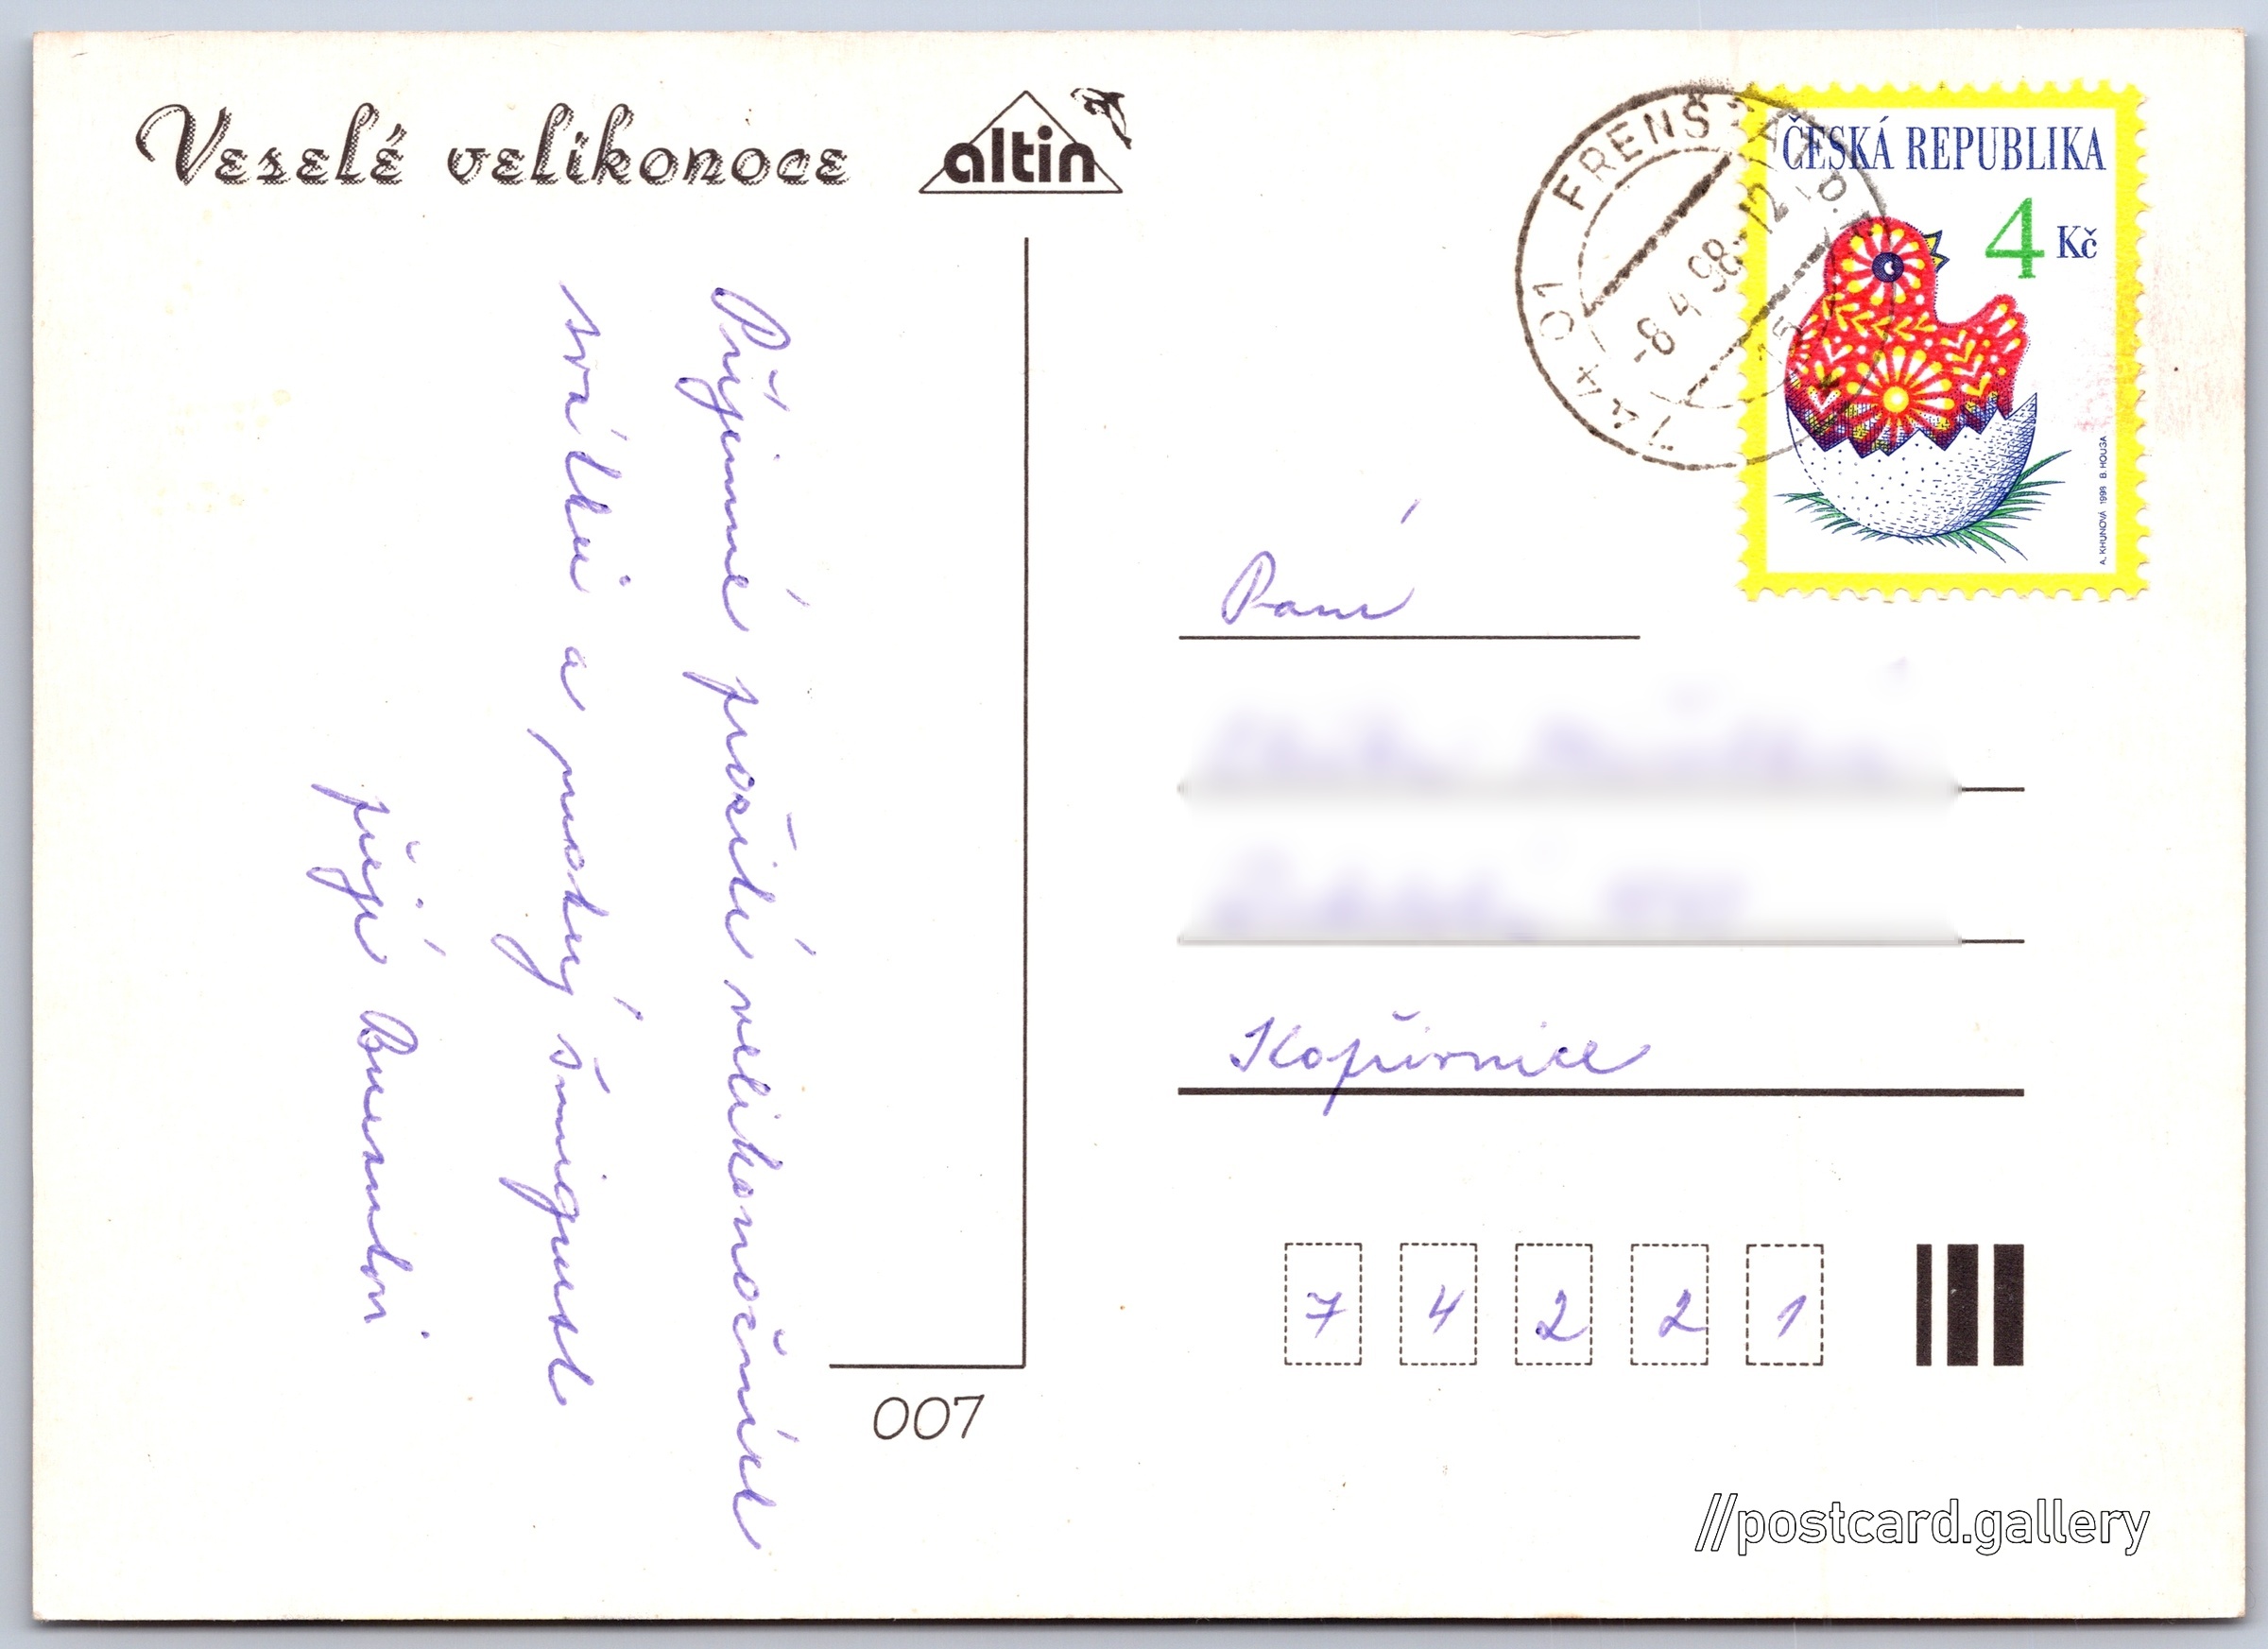 Veselé velikonoce
altin
Příjemné prožití velikonočních
svátků a pestrý šmigust
přejí
007
744 01 FRENŠTÁT P. R.
-8.4.98-12
ČESKÁ REPUBLIKA
4 Kč
A. KHUNOVÁ 1998 B. HOUSA
Paní
Kopřivnice
7 4 2 2 1
//postcard.gallery